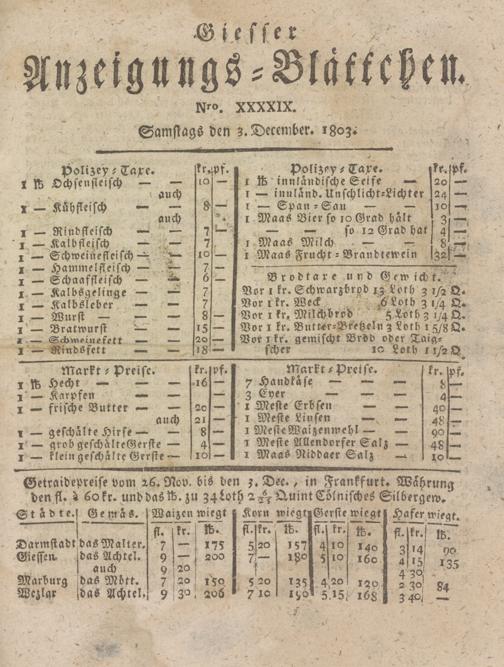 Giesser
Anzeigungs-Blättchen.
Nro. XXXXIX.
Samstags den 3. December. 1803.
Polizey-Taxe. kr. pf.
1 ℔ Ochsenfleisch — — 10 —
auch
1 — Kühfleisch — — 8 —
auch
1 — Rindfleisch — — 7 —
1 — Kalbfleisch — — 7
1 — Schweinefleisch — — 10 —
1 — Hammelfleisch — 7 —
1 — Schaaffleisch — — 6
1 — Kalbsgelinge — — 7
1 — Kalbsleber — — 7
1 — Wurst — — 8 —
1 — Bratwurst — — 15 —
1 — Schweinefett — — 20 —
1 — Rindsfett — — 18 —
Polizey-Taxe. kr. pf.
1 ℔ innländische Seife — 20 —
1 — innländ. Unschlitt-Lichter 24 —
1 — Span-Sau — — 10 —
1 Maas Bier so 10 Grad hält 3
— — so 12 Grad hat 4 —
1 Maas Milch — — 8 —
1 Maas Frucht-Brandtewein 32 —
Brodtaxe und Gewicht.
Vor 1 kr. Schwarzbrod 13 Loth 3 1/2 Q.
Vor 1 kr. Weck 6 Loth 3 1/4 Q.
Vor 1 kr. Milchbrod 5 Loth 3 1/4 Q.
Vor 1 kr. Butter-Bretzeln 3 Loth 1 5/8 Q.
Vor 1 kr. gemischt Brod oder Taig-
scher 10 Loth 1 1/2 Q.
Markt-Preise. kr. pf.
1 ℔ Hecht — — 16 —
1 — Karpfen — —
1 — frische Butter — — 20 —
auch 21
1 — geschälte Hirse — — 8 —
1 — grob geschälte Gerste — 4 —
1 — klein geschälte Gerste — 10 —
Markt-Preise. kr. pf.
7 Handkäse — — 8 —
3 Eyer — — — 4 —
1 Meste Erbsen — — 40 —
1 Meste Linsen — — 48 —
1 Meste Waizenmehl — — 90 —
1 Meste Allendorfer Salz — 48 —
1 Maas Niddaer Salz — 10 —
Getraidepreise vom 26. Nov. bis den 3. Dec., in Frankfurt. Währung
den fl. à 60 kr. und das ℔. zu 34 Loth Quint Cölnisches Silbergew.
Städte. Gemäs. Waizen wiegt Korn wiegt Gerste wiegt Hafer wiegt.
fl. kr. ℔. fl. kr. ℔. fl. kr. ℔. fl. kr. ℔.
Darmstadt das Malter. 7 — 175 5 20 157 4 10 140 3 14 90
Giessen das Achtel. 9 — 200 7 — 180 5 10 160 4 15 135
auch 9 20 4 30
Marburg das Mött. 7 20 150 5 20 135 4 20 120 2 30 84
Wezlar das Achtel. 9 30 206 7 10 190 5 15 168 3 40 —